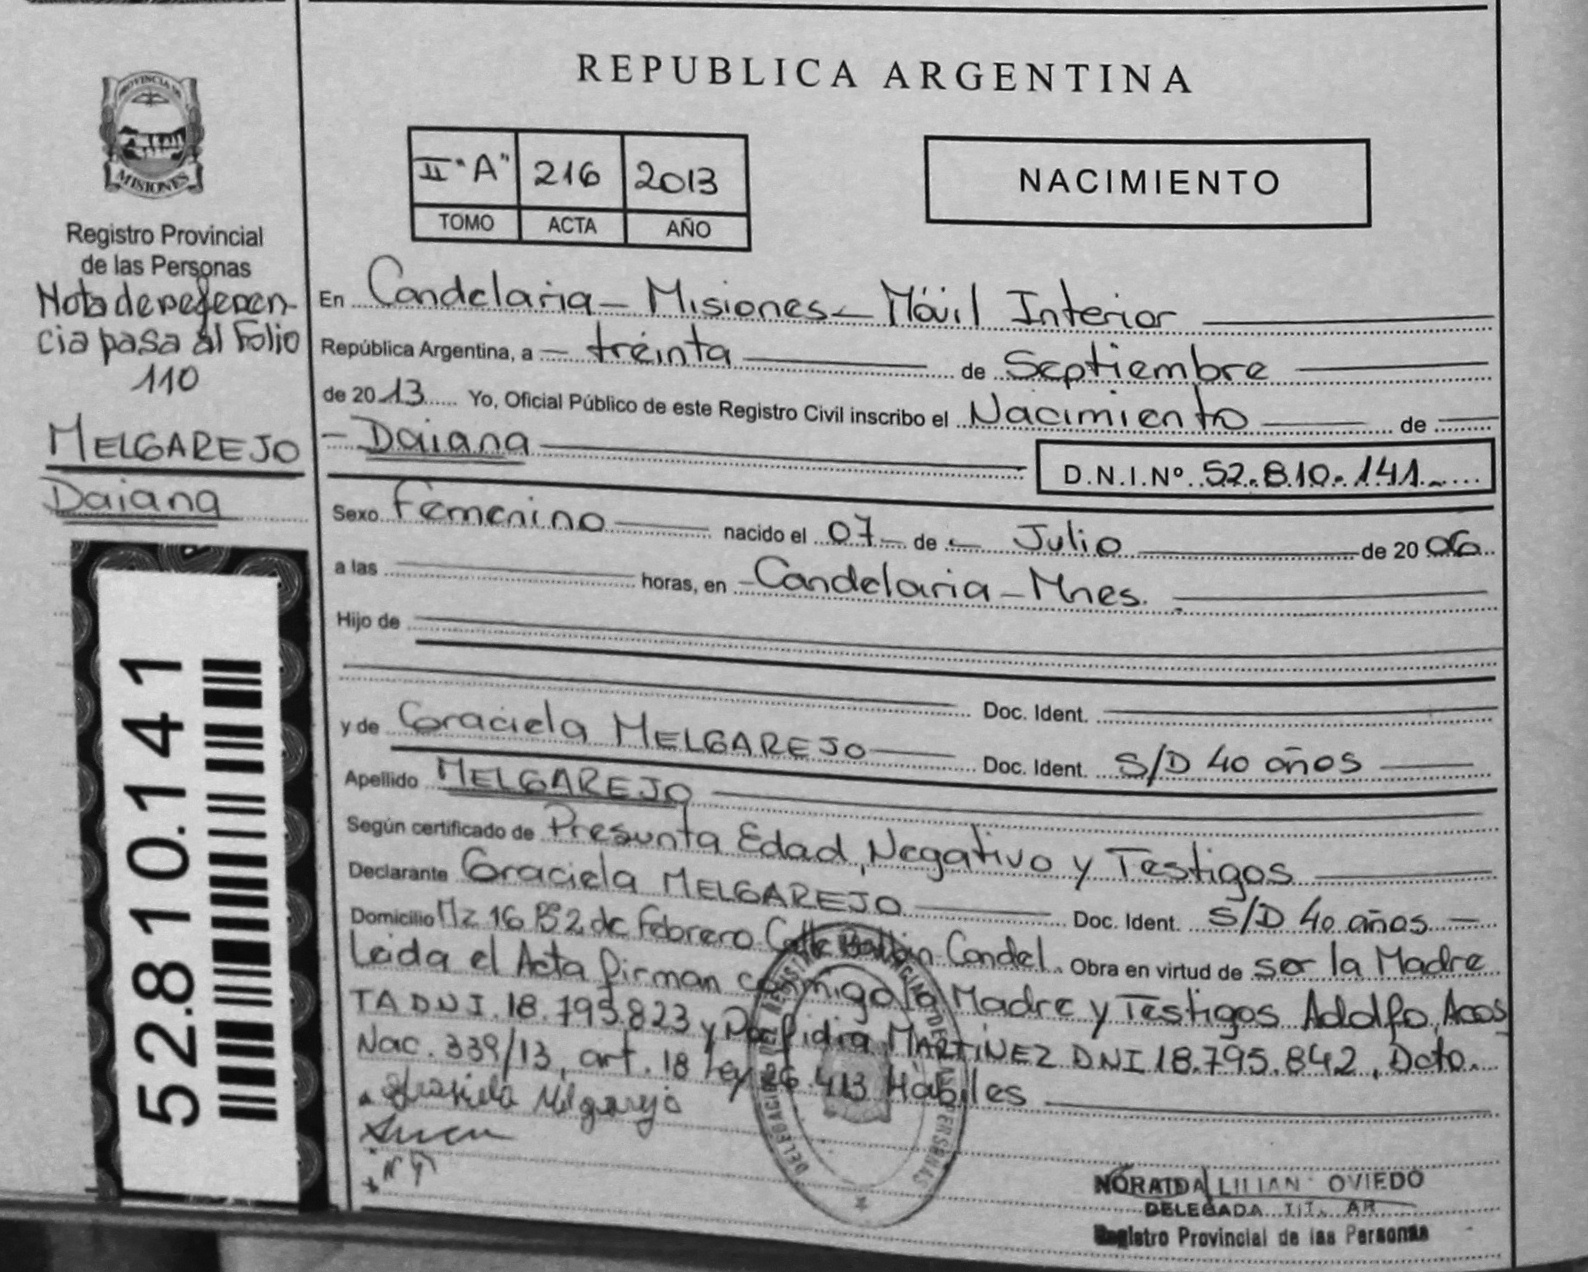 PROVINCIA DE
MISIONES
Registro Provincial
de las Personas
Nota de referen-
cia pasa al Folio
110
MELGAREJO
Daiana
52.810.141
REPUBLICA ARGENTINA
II "A" 216 2013
TOMO ACTA AÑO
NACIMIENTO
En Candelaria - Misiones - Móvil Interior
República Argentina, a - treinta de Septiembre
de 2013 Yo, Oficial Público de este Registro Civil inscribo el Nacimiento de
- Daiana
D.N.I.Nº 52.810.141
Sexo Femenino nacido el 07 - de - Julio de 2006
a las horas, en - Candelaria - Mnes.
Hijo de
Doc. Ident.
y de Graciela MELGAREJO Doc. Ident. S/D 40 años
Apellido MELGAREJO
Según certificado de Presunta Edad, Negativo y Testigos
Declarante Graciela MELGAREJO Doc. Ident. S/D 40 años -
Domicilio Mz 16 Bº 2 de Febrero Calle Candel. Obra en virtud de ser la Madre
Leida el Acta firman conmigo la Madre y Testigos Adolfo, Acos
TA DNI. 18.795.823 y MARTINEZ DNI 18.795.842, Dcto.
Nac. 339/13, art. 18 Ley 26.413 Habiles
Graciela Melgarejo
NORAIDA LILIAN OVIEDO
DELEGADA TIT. AR
Registro Provincial de las Personas